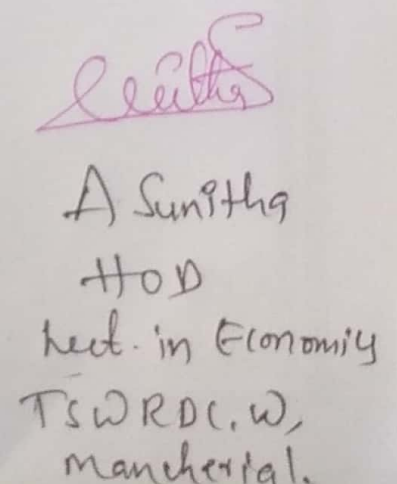 A Sunitha
HOD
Lect. in Economics
TSWRDC, W,
Mancherial.